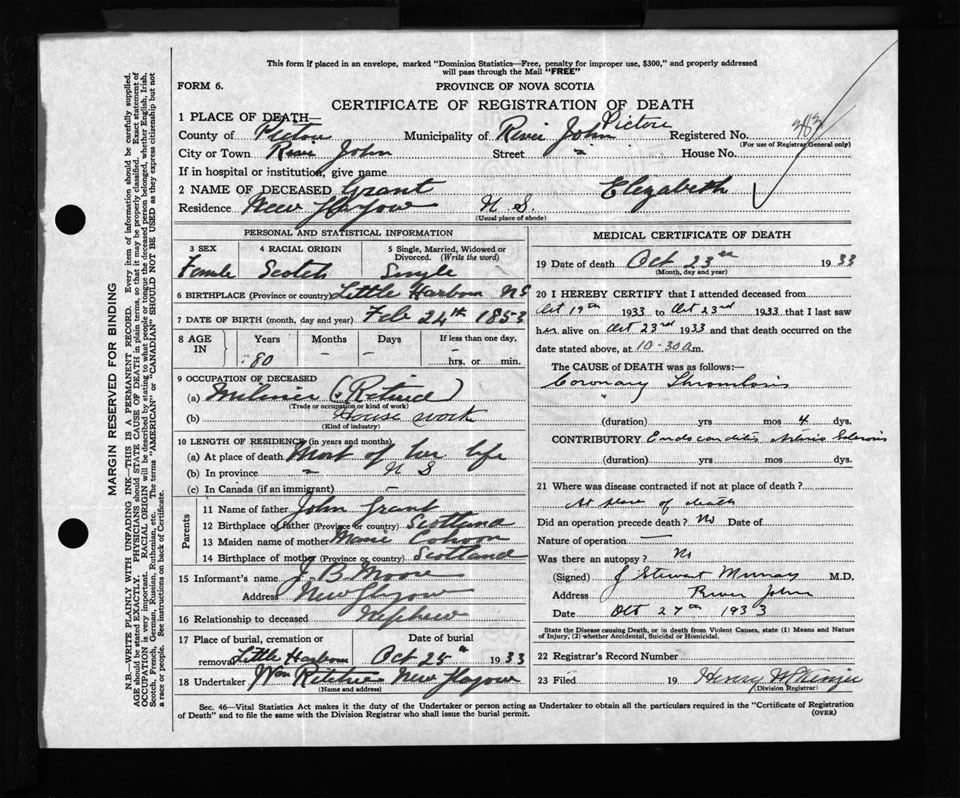 This form if placed in an envelope, marked "Dominion Statistics—Free, penalty for improper use, $300," and properly addressed
will pass through the Mail "FREE"
FORM 6.
PROVINCE OF NOVA SCOTIA
CERTIFICATE OF REGISTRATION OF DEATH
1 PLACE OF DEATH—
County of Pictou Municipality of River John Pictou Registered No. 383
(For use of Registrar General only)
City or Town River John Street " House No.
If in hospital or institution, give name
2 NAME OF DECEASED Grant Elizabeth
Residence New Glasgow N. S.
(Usual place of abode)
PERSONAL AND STATISTICAL INFORMATION
3 SEX 4 RACIAL ORIGIN 5 Single, Married, Widowed or
Divorced. (Write the word)
Female Scotch Single
6 BIRTHPLACE (Province or country) Little Harbour NS
7 DATE OF BIRTH (month, day and year) Feb 24th 1853
8 AGE IN Years Months Days If less than one day,
80 – – –
hrs. or min.
9 OCCUPATION OF DECEASED
(a) Milliner (Retired)
(Trade or occupation or kind of work)
(b) House work
(Kind of industry)
10 LENGTH OF RESIDENCE (in years and months)
(a) At place of death Most of her life
(b) In province " N S
(c) In Canada (if an immigrant) –
Parents
11 Name of father John Grant
12 Birthplace of father (Province or country) Scotland
13 Maiden name of mother Marie
14 Birthplace of mother (Province or country) Scotland
15 Informant's name J. B. Moore
Address New Glasgow
16 Relationship to deceased Nephew
17 Place of burial, cremation or Date of burial
removal Little Harbour Oct 25th 1933
18 Undertaker Wm New Glasgow
(Name and address)
MEDICAL CERTIFICATE OF DEATH
19 Date of death Oct 23rd 1933
(Month, day and year)
20 I HEREBY CERTIFY that I attended deceased from
Oct 19th 1933 to Oct 23rd 1933 that I last saw
her alive on Oct 23rd 1933 and that death occurred on the
date stated above, at 10-30 a.m.
The CAUSE of DEATH was as follows:—
Coronary Thrombosis
(duration) yrs mos 4 dys.
CONTRIBUTORY Endocarditis Arterio Sclerosis
(duration) yrs mos. dys.
21 Where was disease contracted if not at place of death?
At place of death
Did an operation precede death? No Date of
Nature of operation —
Was there an autopsy? No
(Signed) J Stewart Murray M.D.
Address River John
Date Oct 27th 1933
State the Disease causing Death, or in death from Violent Causes, state (1) Means and Nature
of Injury, (2) whether Accidental, Suicidal or Homicidal.
22 Registrar's Record Number
23 Filed 19 Henry McKenzie
(Division Registrar)
Sec. 46—Vital Statistics Act makes it the duty of the Undertaker or person acting as Undertaker to obtain all the particulars required in the "Certificate of Registration
of Death" and to file the same with the Division Registrar who shall issue the burial permit. (OVER)
MARGIN RESERVED FOR BINDING
N.B.—WRITE PLAINLY WITH UNFADING INK—THIS IS A PERMANENT RECORD. Every item of information should be carefully supplied.
AGE should be stated EXACTLY. PHYSICIANS should STATE CAUSE OF DEATH in plain terms, so that it may be properly classified. Exact statement of
OCCUPATION is very important. RACIAL ORIGIN will be described by stating to what people or tongue the deceased person belonged, whether English, Irish,
Scotch, French, German, Russian, Ruthenian, etc. The terms "AMERICAN" or "CANADIAN" SHOULD NOT BE USED as they express citizenship but not
a race or people. See instructions on back of Certificate.